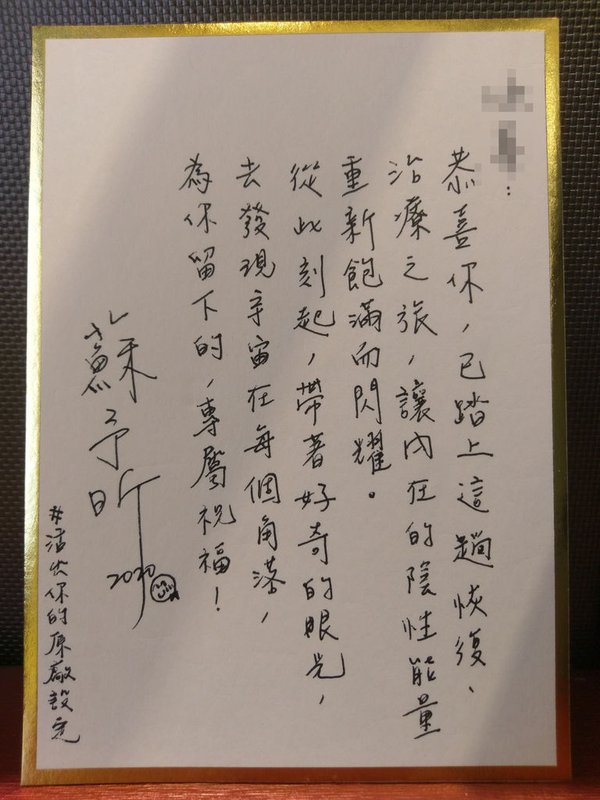 ：
恭喜你，已踏上這趟恢復、
治療之旅，讓內在的陰性能量
重新飽滿而閃耀。
從此刻起，帶著好奇的眼光，
去發現宇宙在每個角落，
為你留下的，專屬祝福！
蘇予昕
2020
#活出你的原廠設定